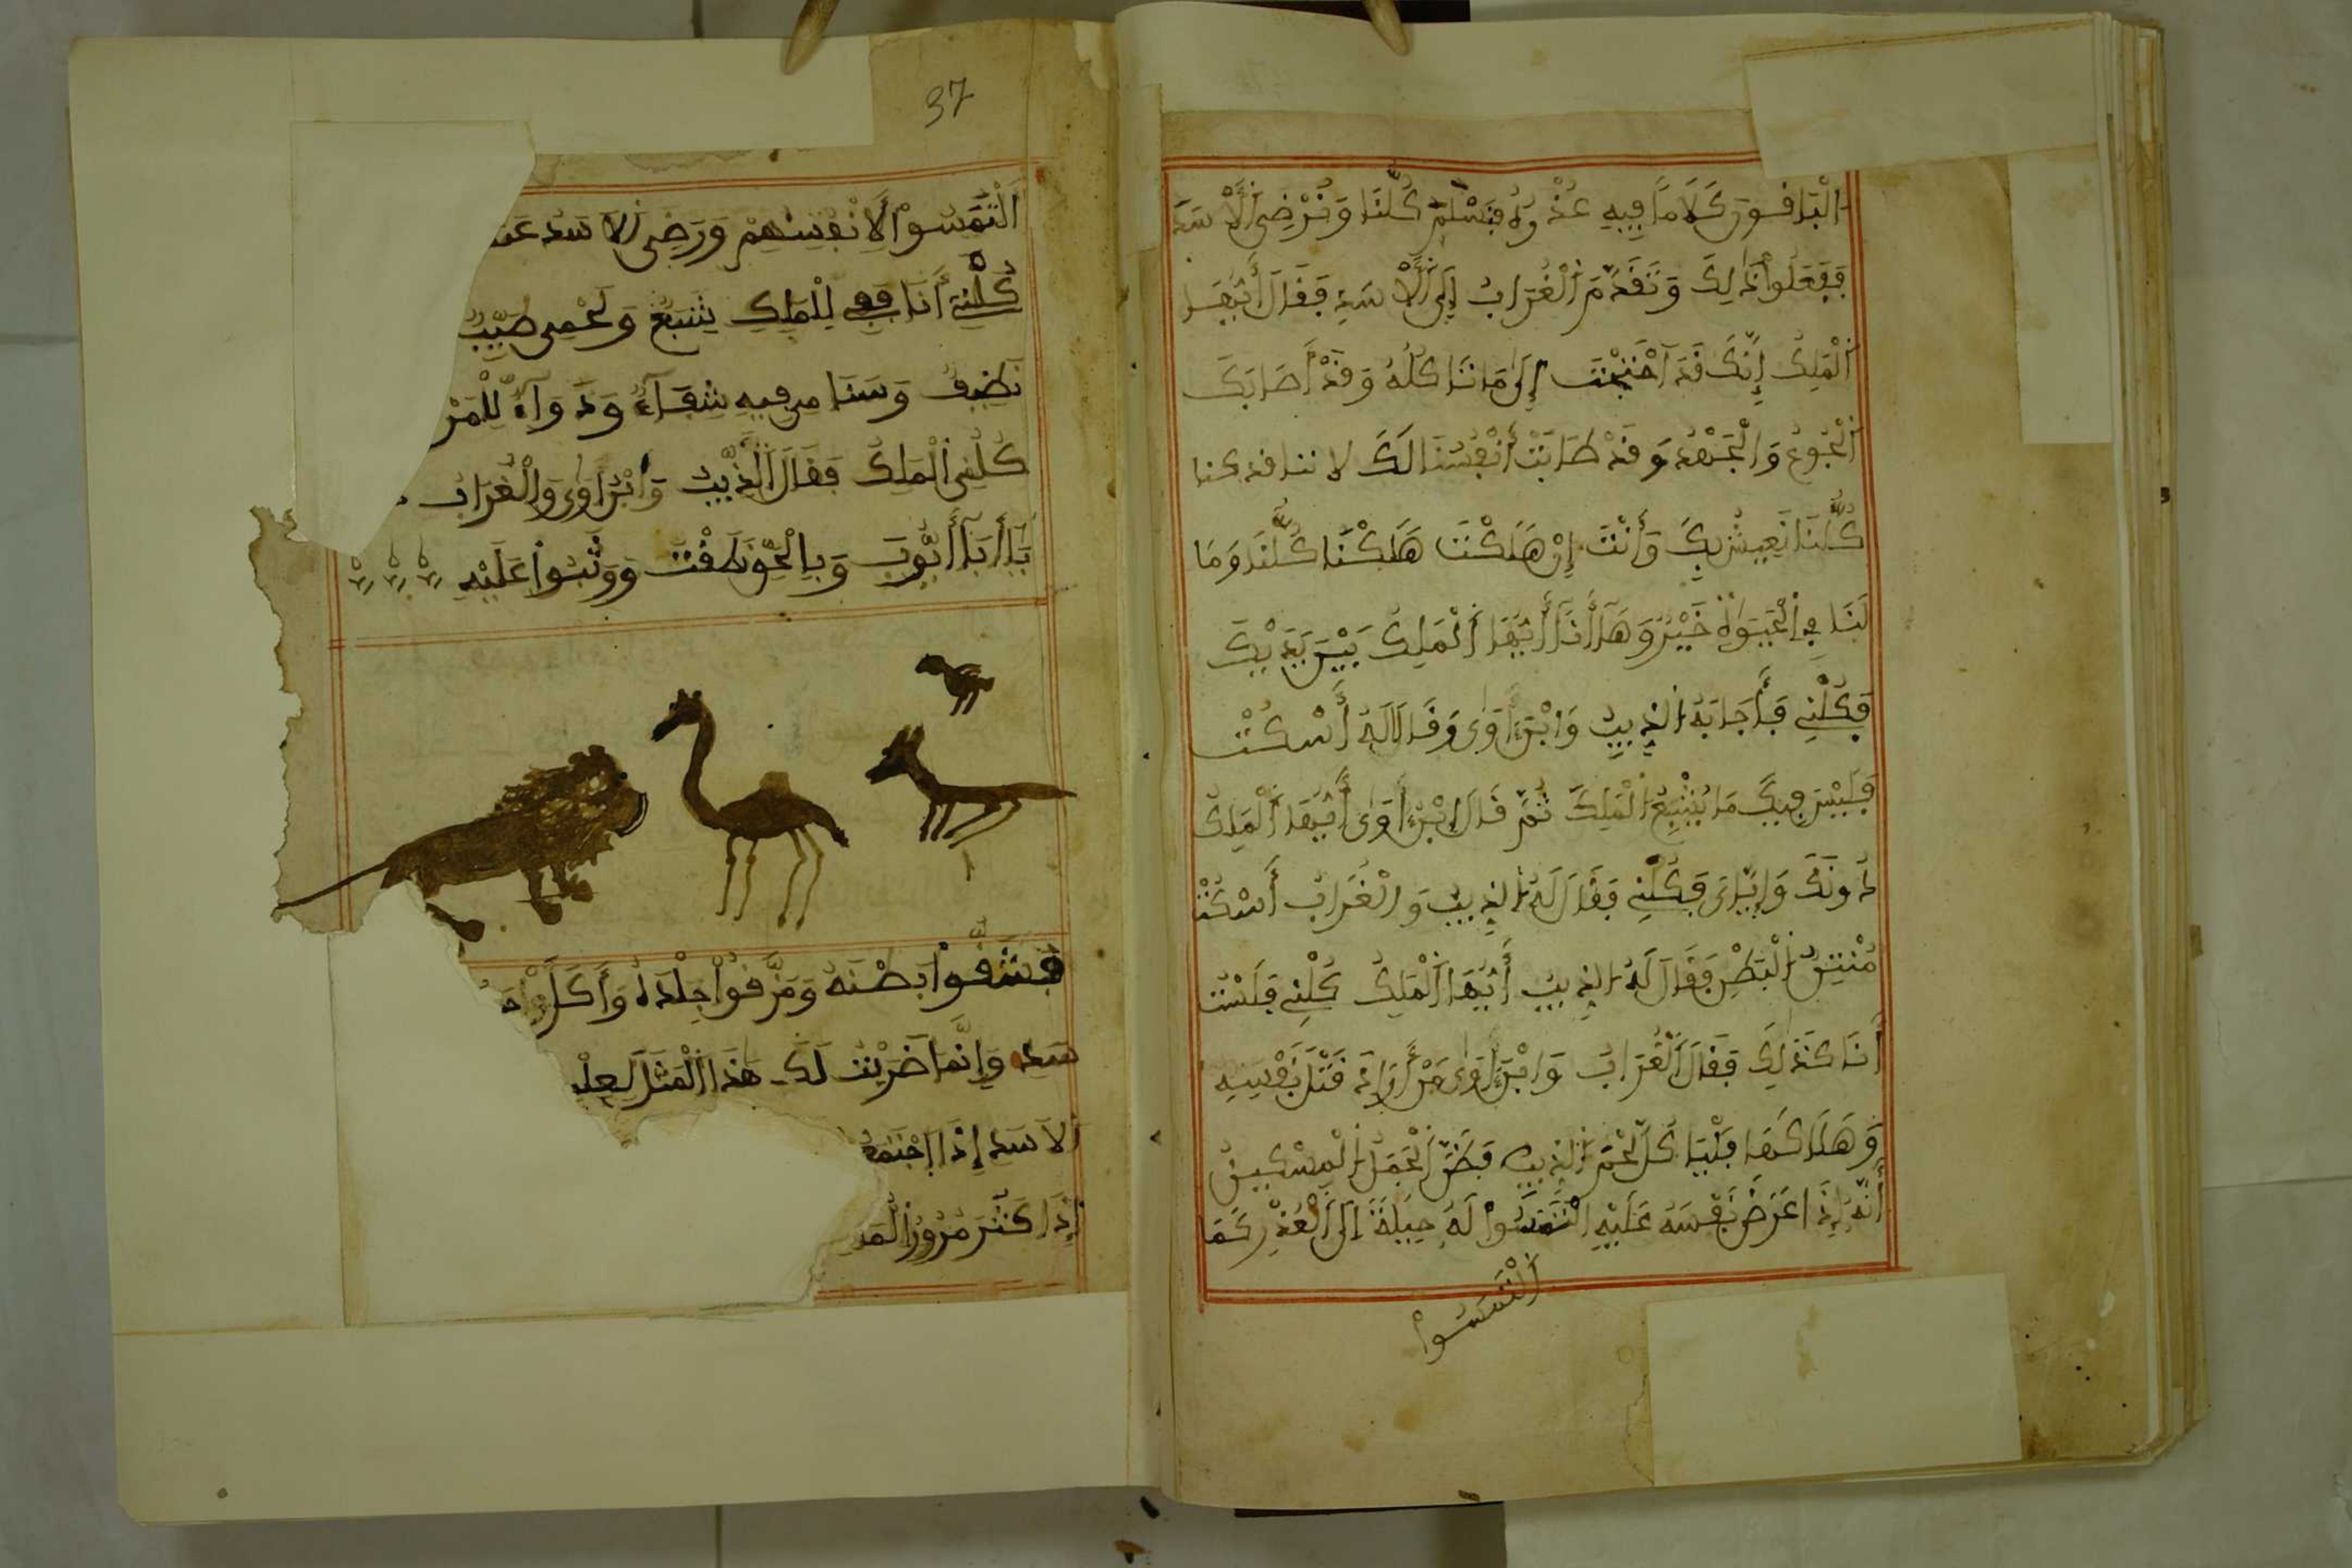 الْبَافُونَ كَلَاماً فِيهِ عُذْرُهُ فَنَسْلَمْ كُلُّنَا وَنُرْضِى الْأَسَدَ
فَفَعَلُواْ ذَلِكَ وَتَقَدَّمَ الْغُرَابُ إِلَى الْأَسَدِ فَقَالَ أَيُّهَا
الْمَلِكُ إِنَّكَ قَدِ احْتَجْتَ إِلَى مَا تَاكُلُهُ وَقَدْ أَصَابَكَ
الْجُوعُ وَالْجَهْدُ وَقَدْ طَابَتْ أَنْفُسُنَا لَكَ لاننا قد كنا
كُلُّنَا نَعِيشُ بِكَ وَأَنْتَ إِنْ هَلَكْتَ هَلَكْنَا كُلُّنَا وَمَا
لَنَا فِى الْحَيَوٰةِ خَيْرٌ وَهَا أَنَا أَيُّهَا الْمَلِكُ بَيْنَ يَدَيْكَ
فَكُلْنِى فَأَجَابَهُ الذِيبُ وَابْنُ أَوَى وَقَالَا لَهُ أُسْكُتْ
فَلَيْسَ فِيكَ مَا يُشْبِعُ الْمَلِكَ ثُمَّ قَالَ ابْنُ أَوَى أَيُّهَا الْمَلِكُ
دُونَكَ وَإِيَّاىَ فَكُلْنِى فَقَالَ لَهُ الذِيبُ وَالْغُرَابُ أُسْكُتْ
مُنْتِنُ الْبَطْنِ فَقَالَ لَهُ الذِيبُ أَيُّهَا الْمَلِكُ كُلْنِى فَلَسْتُ
أَنَا كَذَلِكَ فَقَالَ الْغُرَابُ وَابْنُ أَوَى مَنْ أَرَادَ قَتْلَ نَفْسِهِ
وَهَلَاكَهَا فَلْيَاكُلْ لَحْمَ الذِيبِ فَظَنَّ الْجَمَلُ الْمِسْكِينُ
أَنَّهُ إِذَا عَرَضَ نَفْسَهُ عَلَيْهِ الْتَمَسُواْ لَهُ حِيلَةً إِلَى الْعُذْرِ كَمَا
الْتَمَسُواْ
37
الْتَمَسُواْ لِأَنْفُسِهِمْ وَرَضِى الاسَدُ عَنـ
كُلْنِى أَنَا فَفِى لِلْمَلِكِ شَبَعٌ وَلَحْمِى طَيِّبٌ
نَظِيفٌ وَسَنَامِى فِيهِ شِفَآءٌ وَدَوَآءٌ لِلْمَرْ
كُلْنِى الْمَلِكُ فَقَالَ الذِّيبُ وَابْنُ أَوَى وَالْغُرَابُ
يَا أَبَا أَيُّوبَ وَبِالْحَقِّ نَطَقْتَ وَوَثَبُواْ عَلَيْهِ
فَشَقُّواْ بَطْنَهُ وَمَزَّقُواْ جِلْدَهُ وَأَكَلُواْ
سَد وَإِنَّمَا ضَرَبْتُ لَكَ هَذَا الْمَثَلَ لِعِلْـ
الاسَد إِذَا اجْتَمَعُـ
إِذَا كَثُرَ مُرُورُ الْمَـ